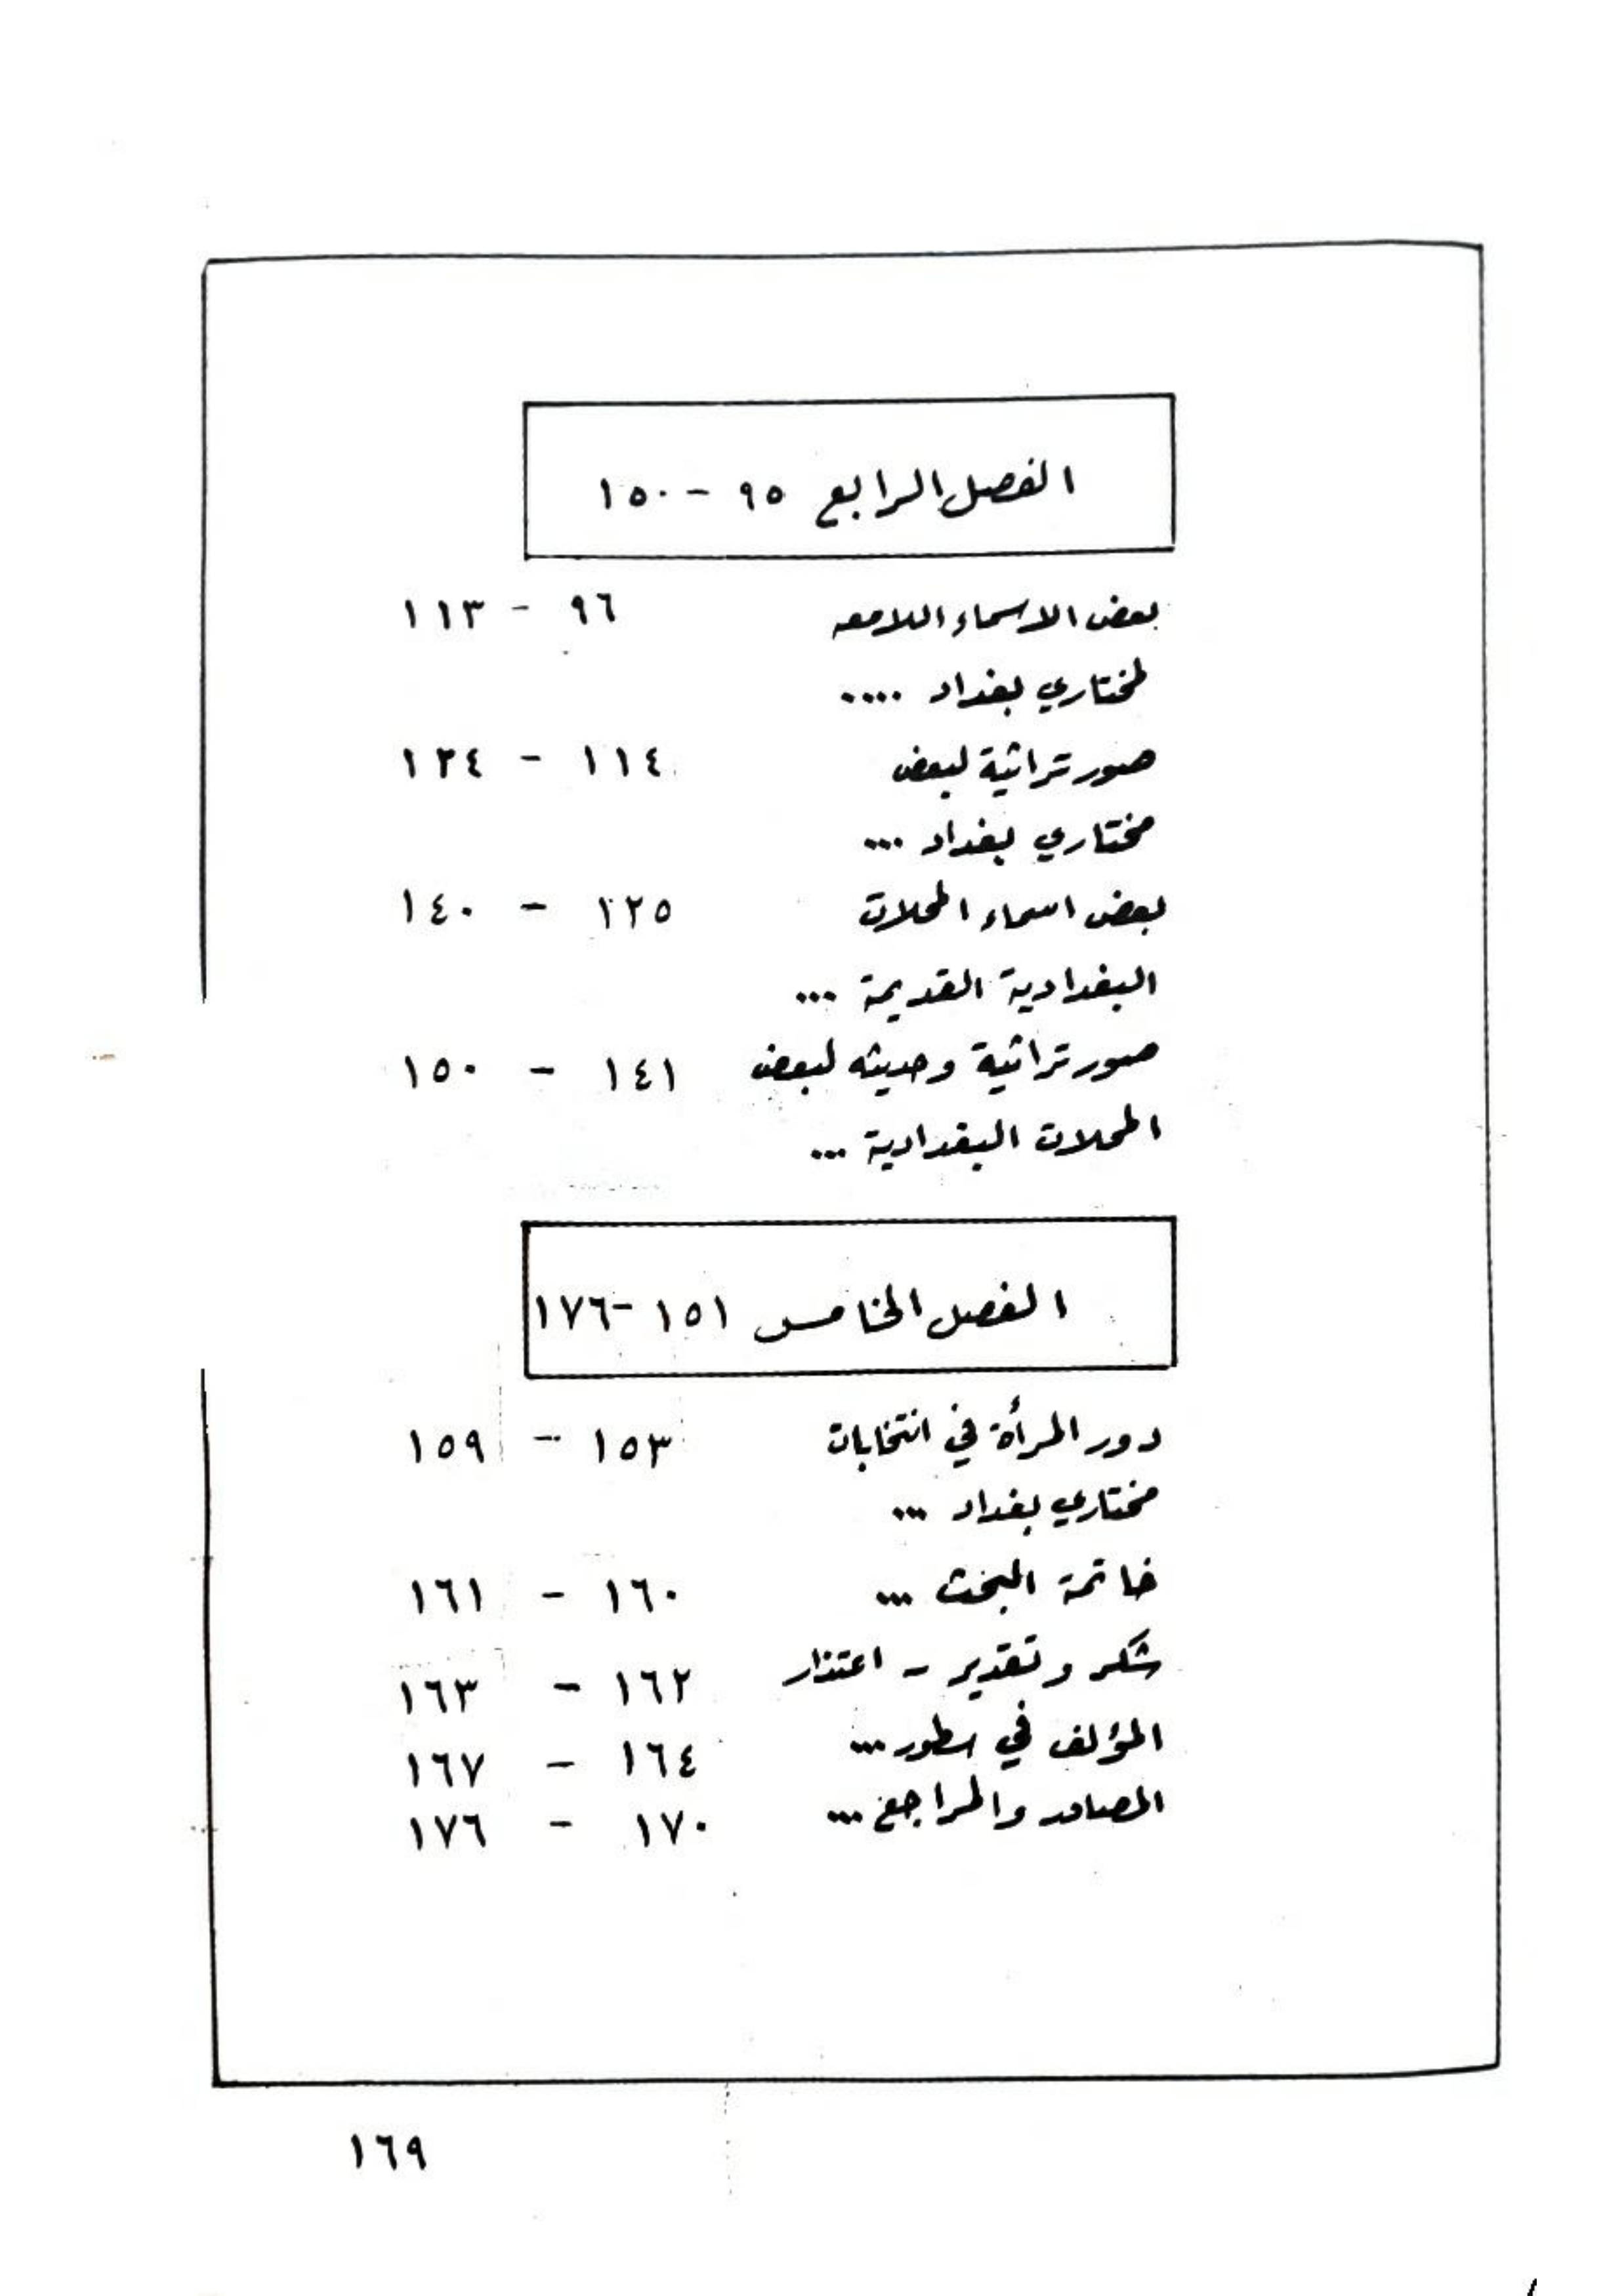 الفصل الرابع ٩٥ - ١٥٠
بعض الاسماء اللامعه ٩٦ - ١١٣
لمختاري بغداد ....
صور تراثية لبعض ١١٤ - ١٢٤
مختاري بغداد ...
بعض اسماء المحلات ١٢٥ - ١٤٠
البغدادية القديمة ...
صور تراثية وحديثه لبعض ١٤١ - ١٥٠
المحلات البغدادية ...
الفصل الخامس ١٥١ - ١٧٦
دور المرأة في انتخابات ١٥٣ - ١٥٩
مختاري بغداد ...
خاتمة البحث ... ١٦٠ - ١٦١
شكر وتقدير - اعتذار ١٦٢ - ١٦٣
المؤلف في سطور ... ١٦٤ - ١٦٧
المصادر والمراجع ... ١٧٠ - ١٧٦
١٦٩